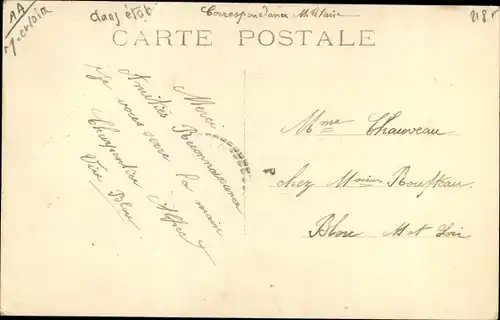 AA
Clans état
Correspondance Militaire
218
CARTE POSTALE
Merci
Amitiés Reconnaissance
je vous serre la main
Charpentier Alfred
Vive Blou
Mme Chauveau
chez Mr
Blou M et Loire